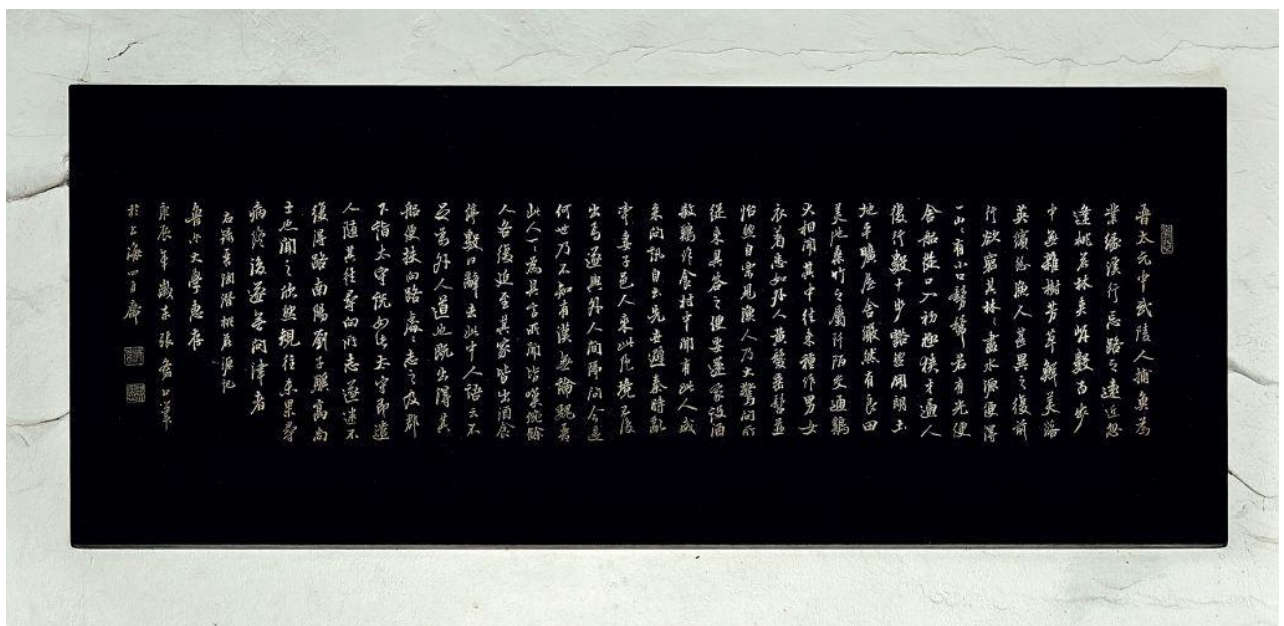 晉太元中武陵人捕魚為
業緣溪行忘路之遠近忽
逢桃花林夾岸數百步
中無雜樹芳草鮮美落
英繽紛漁人甚異之復前
行欲窮其林〻盡水源便得
一山〻有小口髣髴若有光便
舍船從口入初極狹才通人
復行數十步豁然開朗土
地平曠屋舍儼然有良田
美池桑竹之屬阡陌交通鷄
犬相聞其中往來種作男女
衣著悉如外人黃髮垂髫並
怡然自樂見漁人乃大驚問所
從來具答之便要還家設酒
殺鷄作食村中聞有此人咸
來問訊自云先世避秦時亂
率妻子邑人來此絕境不復
出焉遂與外人間隔問今是
何世乃不知有漢無論魏晉
此人一一為具言所聞皆嘆惋餘
人各復延至其家皆出酒食
停數日辭去此中人語云不
足為外人道也既出得其
船便扶向路處〻志之及郡
下詣太守說如此太守即遣
人隨其往尋向所志遂迷不
復得路南陽劉子驥高尚
士也聞之欣然規往未果尋
病終後遂無問津者
右錄晉陶潛桃花源記
大學惠存
庚辰年歲末張
於上海四